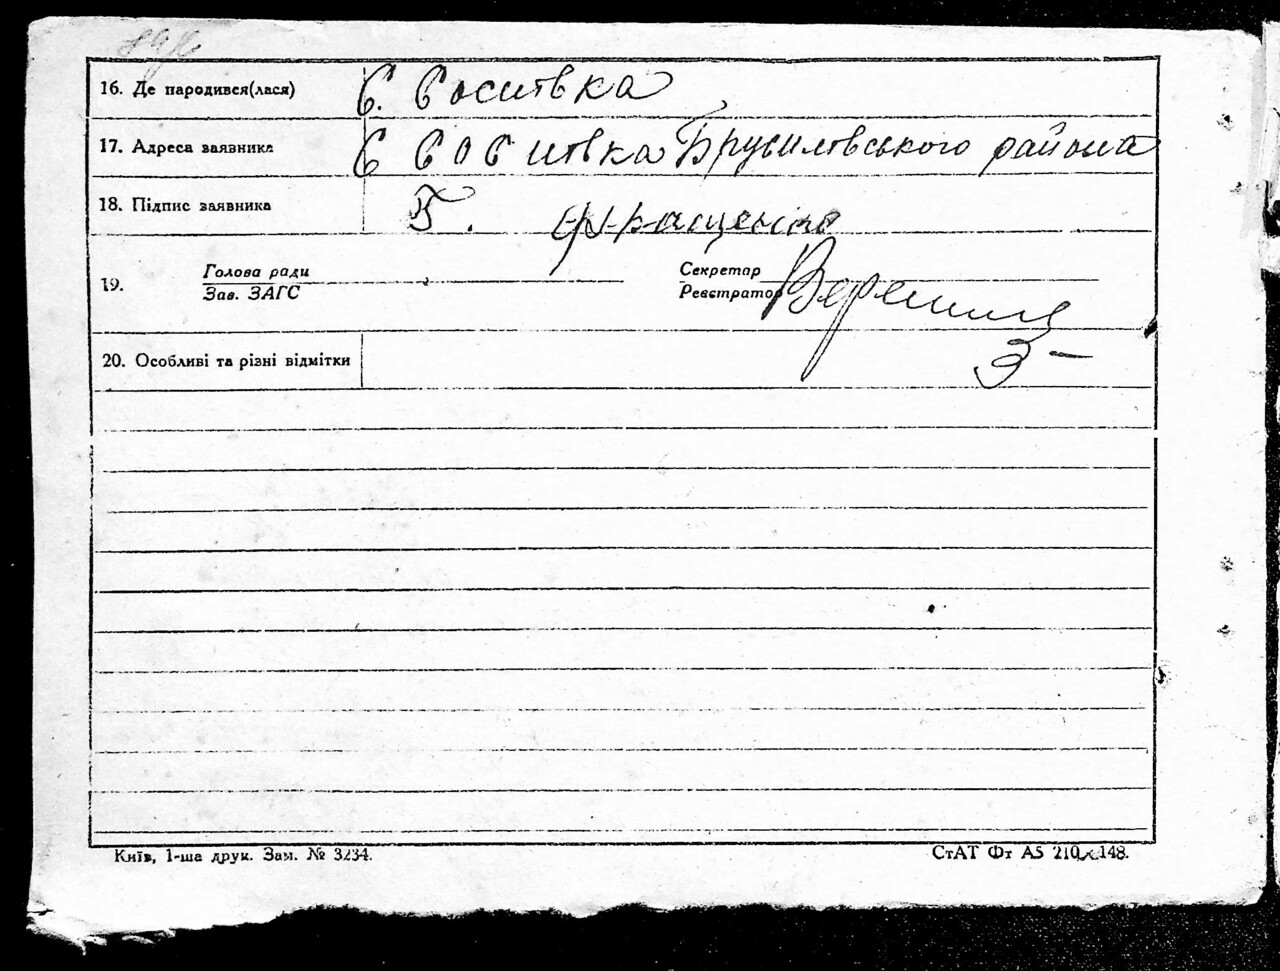 16. Де народився(лася) С. Соситвка
17. Адреса заявника С Соситвка Брусилтвського района
18. Підпис заявника
19. Голова ради Секретар
Зав. ЗАГС Реєстратор
20. Особливі та різні відмітки
Київ, 1-ша друк. Зам. № 3234. СтАТ Фт А5 210×148.